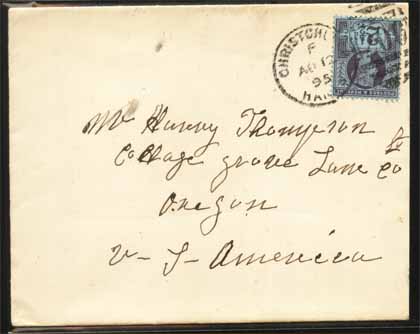 CHRISTCHU
F
AU 12
95
HAN
Mr Henry Thompson
Cottage grove Lane Co
Oregon
U-S-America